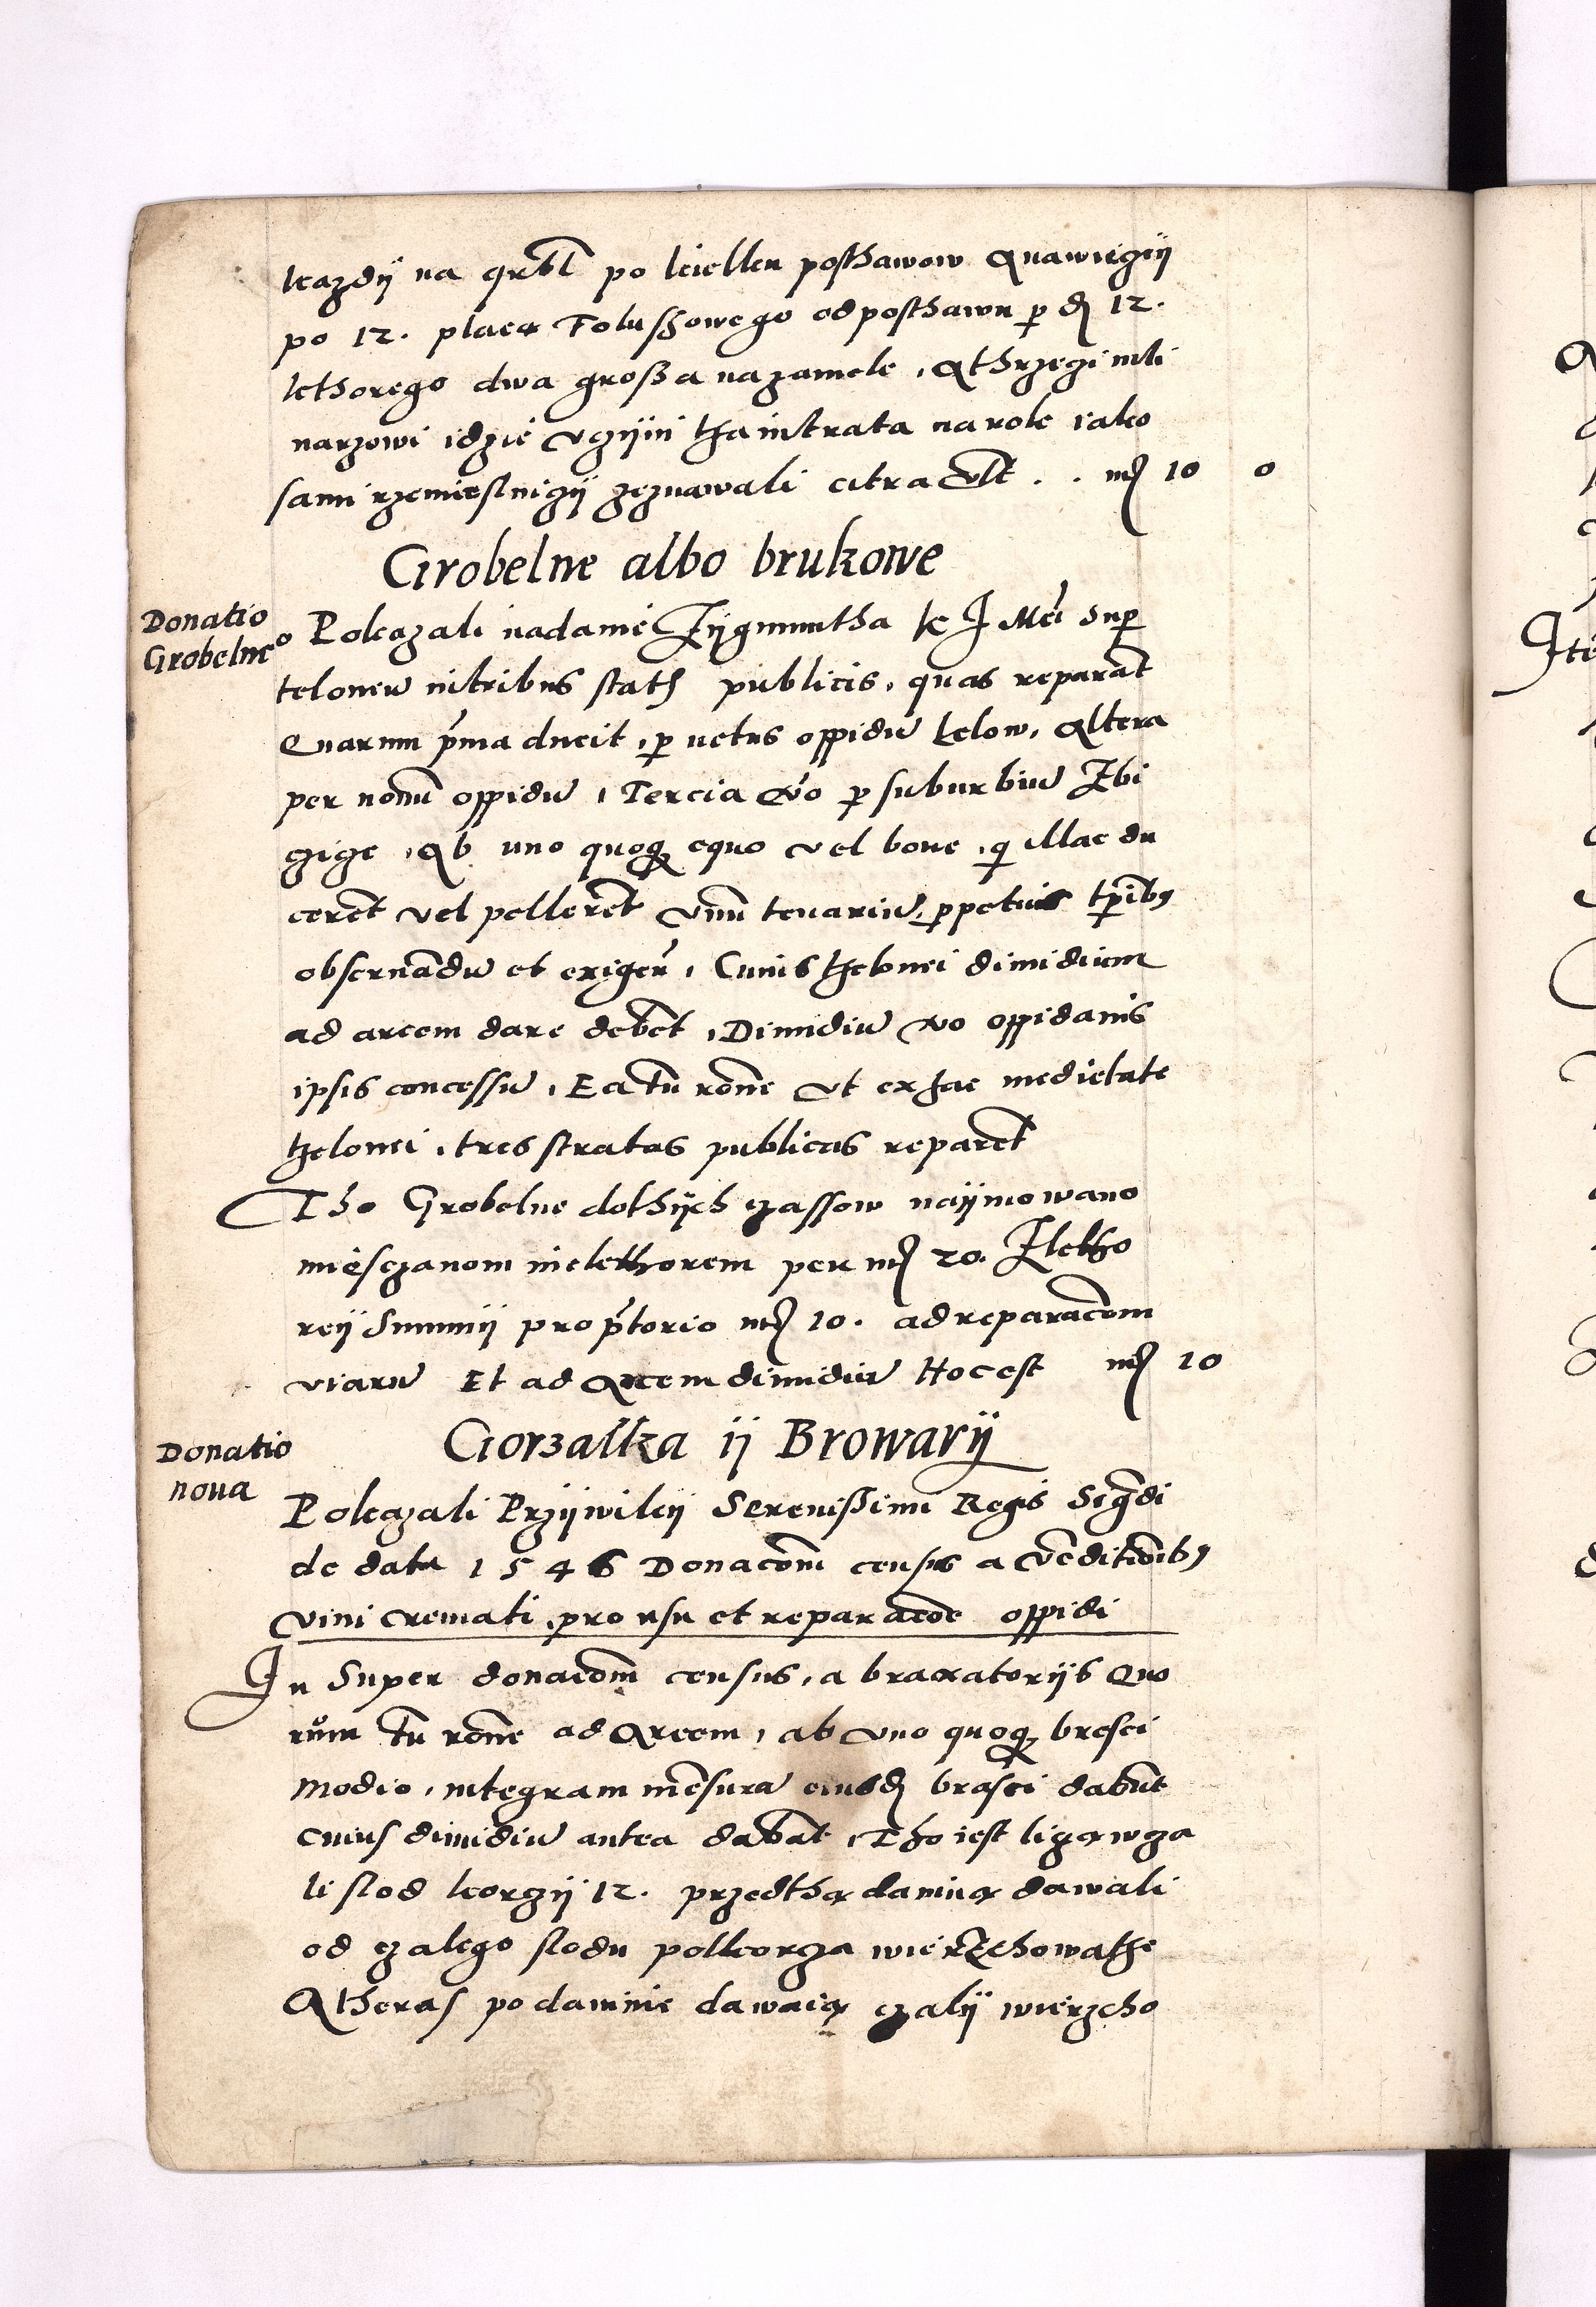 kazdÿ na qrtl po kiellku posthawow Anawięczÿ
po 12. placą Foluszowego od posthawu p ₰ 12.
kthorego dwa grossa na zamek, A thrzeczi mli
narzowi idzie vczÿni tha intrata na rok iako
sami rzemiesnicÿ zeznawali citra vlt . . mꝝ 10 0
Grobelne albo brukowe
Donatio
Grobelneo
Pokazali nadanie Zÿgmuntha K J Mci sup
teloneu in tribus strath publicis, quas reparant
Quarum pma ducit, p uetus oppidu Lelow, Altera
per nouu oppidu, Tercia vo p suburbiu Zbi
czicze, Ab uno quoq equo vel boue, q illac du
cerent vel pellerent vnu ternariu, ppetuis tpibus
obseruandu et exigen, Cuius thelonei dimidium
ad arcem dare debent, Dimidiu vo oppidanis
ipsis concessu, Ea tn rone vt ex hac medietate
thelonei, tres stratas publicas reparent
Tho Grobelne do thÿch czassow naÿmowano
miesczanom niekthorem per mꝝ 20. Z ktho
reÿ Summÿ pro ptorio mꝝ 10. ad reparacom
viaru Et ad Arcem dimidiu Hoc est mꝝ 10
Donatio
noua
Gorzalka ij Browarÿ
Pokazali Przÿwileÿ Serenissimi Regis Sigdi
de data 1546 Donacom census a venditionibus
vini cremati, pro usu et reparacoe oppidi
In Super donacom census, a braxatorÿs Quo
rum tn rone ad Arcem, ab vno quoq brasei
modio, integram mensura eiusd brasei dabunt
cuius dimidiu antea dabant, Tho iest licząwcza
le slod korczÿ 12. przed thą daniną dawali
od czalego slodu polkorcza wierzchowathe
A theras po daninie dawaią czalÿ wierzcho